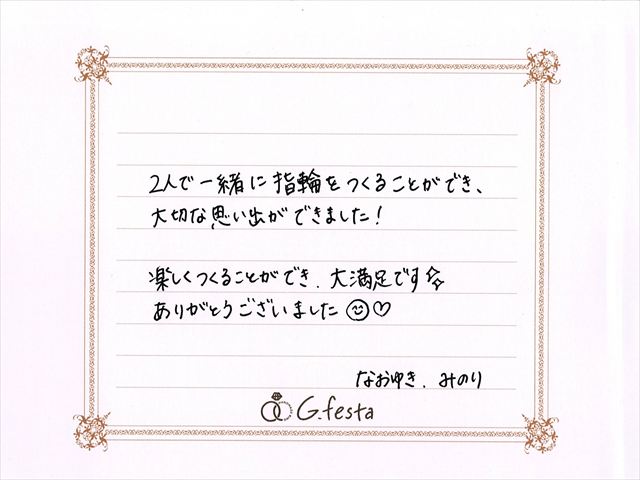 2人で一緒に指輪をつくることができ、
大切な思い出ができました!
楽しくつくることができ、大満足です
ありがとうございました
なおゆき、みのり
G.festa